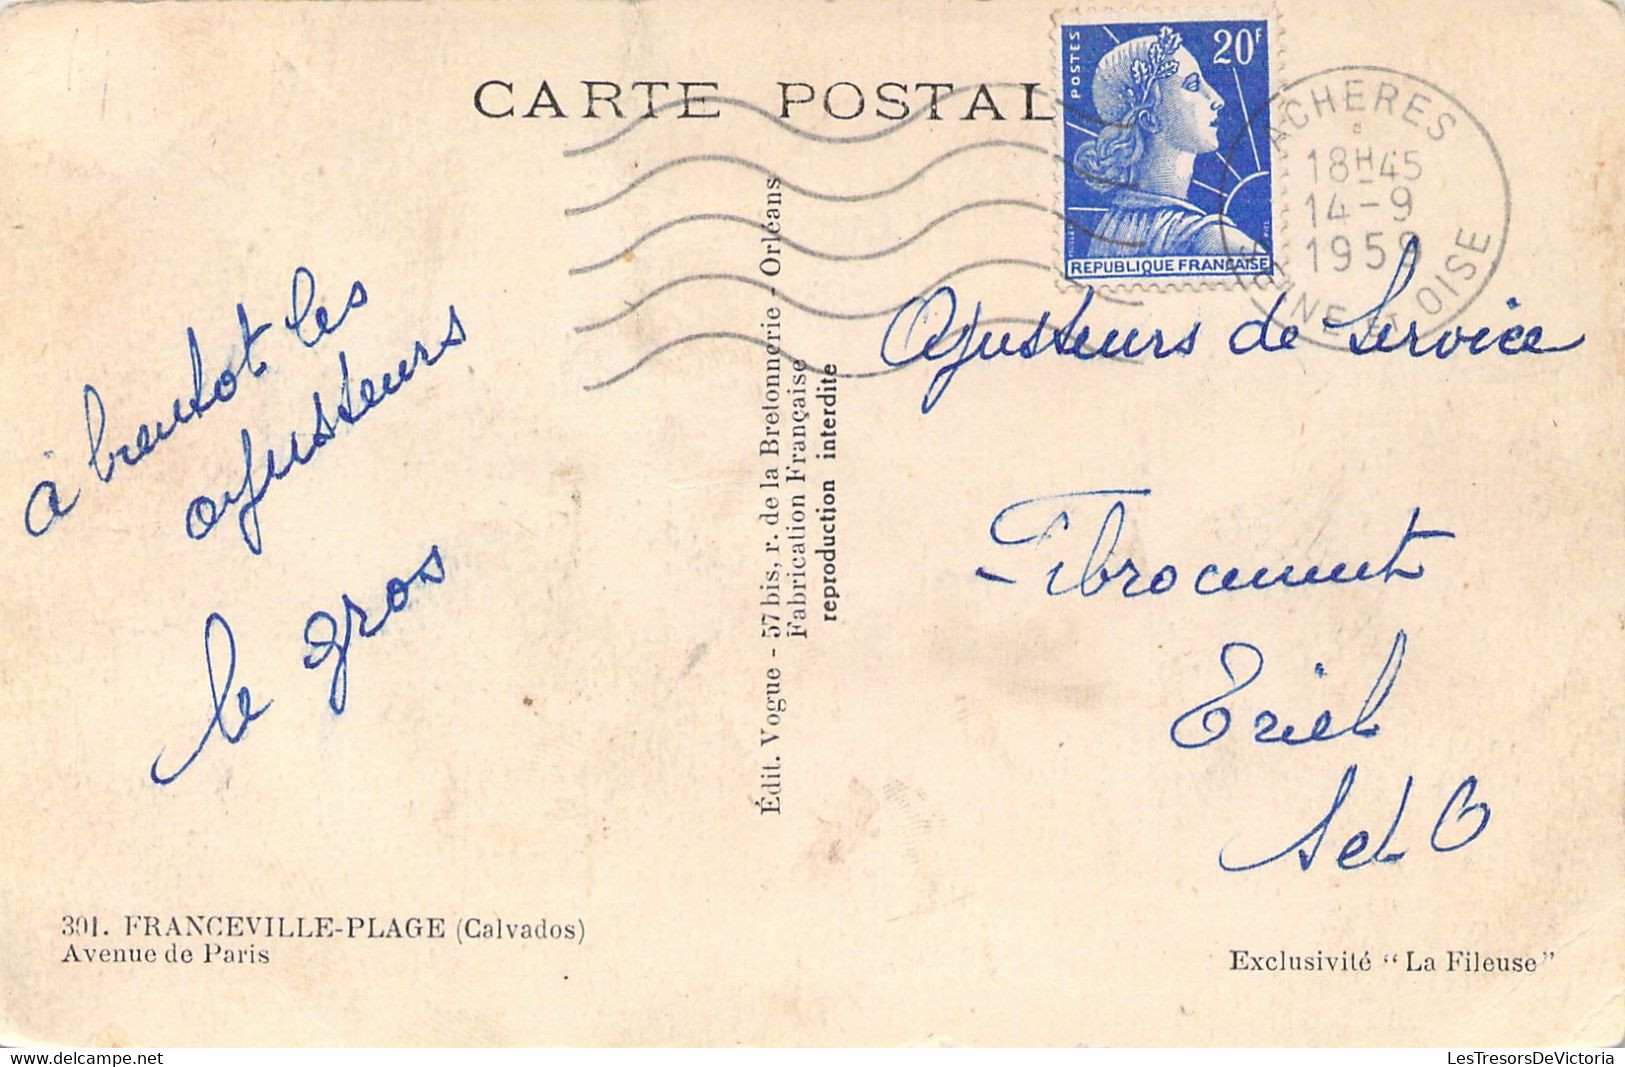 CARTE POSTALE
POSTES
20F
REPUBLIQUE FRANÇAISE
ACHERES
18H45
14-9
1959
SEINE ET OISE
à bientot les
ajusteurs
le gros
Édit. Vogue - 57 bis, r. de la Bretonnerie - Orléans
Fabrication Française
reproduction interdite
Ajusteurs de Service
Fibrociment
Triel
S et O
301. FRANCEVILLE-PLAGE (Calvados)
Avenue de Paris
Exclusivité “La Fileuse”
LesTresorsDeVictoria